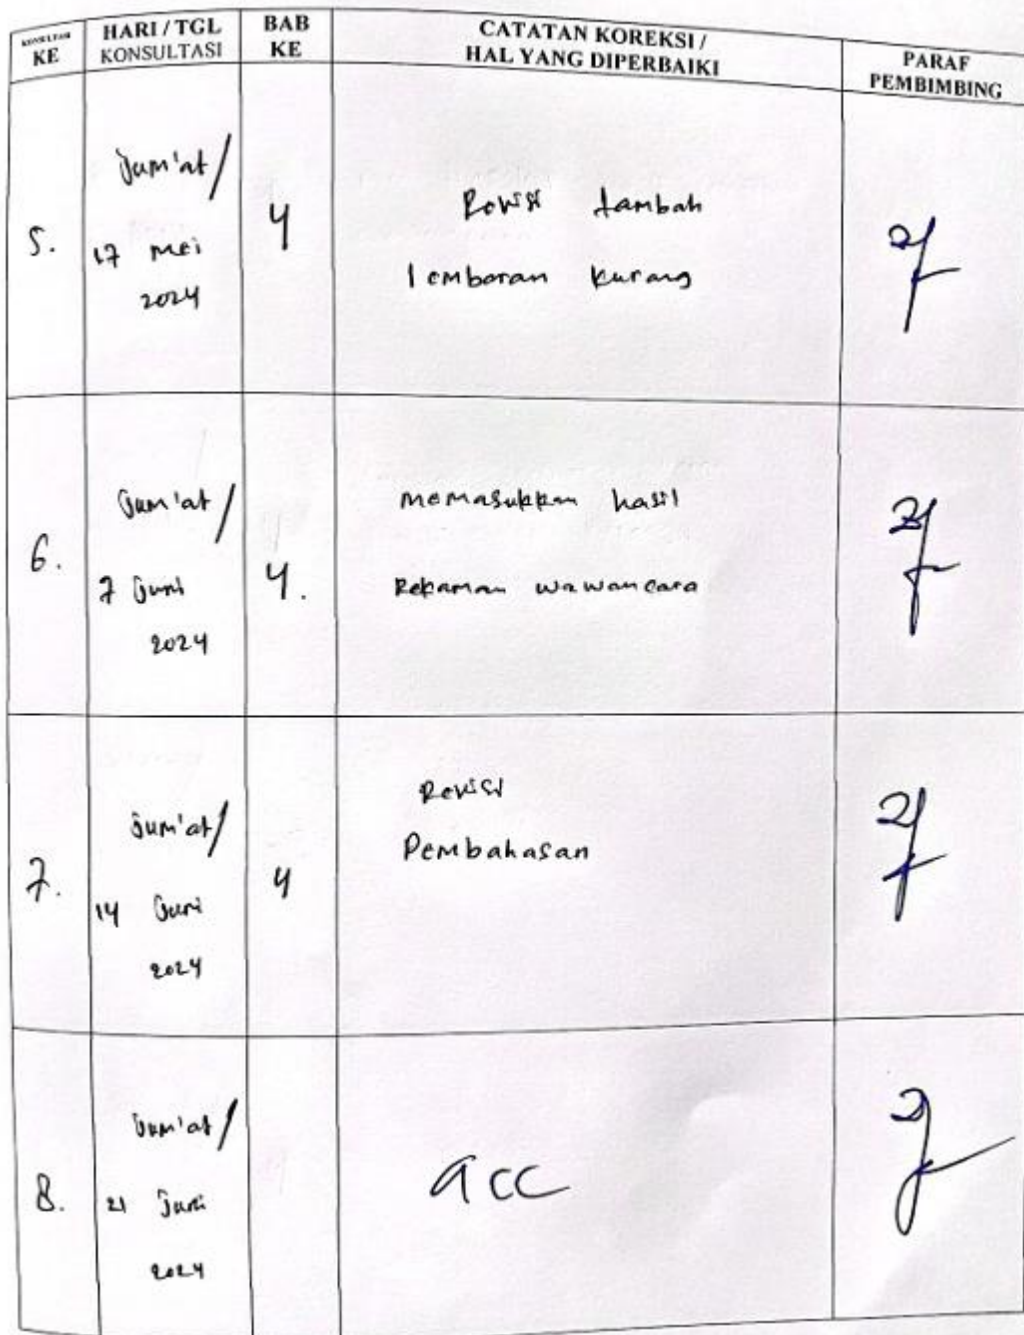 KONSULTASI KE
HARI / TGL
KONSULTASI
BAB
KE
CATATAN KOREKSI /
HAL YANG DIPERBAIKI
PARAF
PEMBIMBING
5.
Jum'at /
17 Mei
2024
4
Revisi tambah
lembaran kurang
6.
Jum'at /
7 Juni
2024
4.
Memasukkan hasil
Rekaman wawancara
7.
Jum'at /
14 Juni
2024
4
Revisi
Pembahasan
8.
Jum'at /
21 Juni
2024
acc